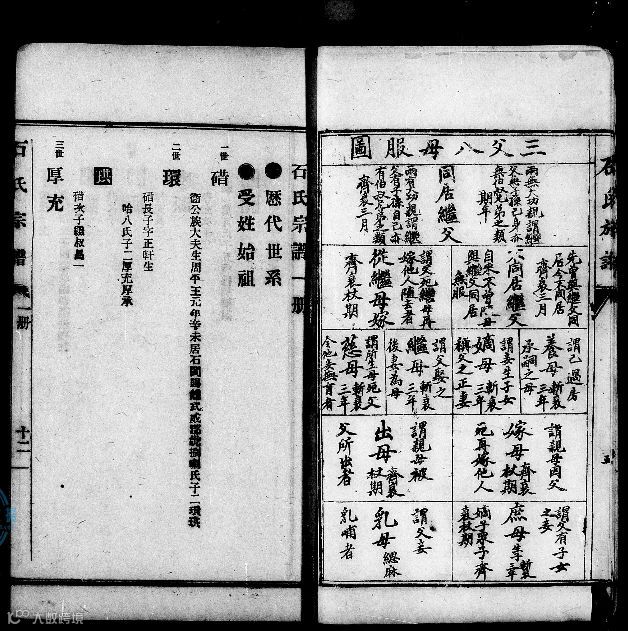 三父八母服圖
兩無大功親謂繼
父無子孫己身亦
無伯兄弟之類
期年
同居繼父
兩有大功親謂繼
父有子孫自己亦
有伯兄弟之類
齊衰三月
先曾與繼父同
居今不同居
齊衰三月
不同居繼父
自來不曾隨母
與繼父同居
無服
謂父死繼母再
嫁他人隨去者
從繼母嫁
齊衰杖期
謂己過房
養母 斬衰三年
承嗣之母
謂妾生子女
嫡母 斬衰三年
稱父之正妻
謂父娶之
繼母 斬衰三年
後妻為母
謂所生母死父
慈母 斬衰三年
令他妾撫育者
謂親母因父
嫁母 齊衰杖期
死再嫁他人
謂親母被
出母 齊衰杖期
父所出者
謂父有子女
之妾
庶母
嫡子眾子齊
衰杖期
謂父妾
乳母 緦麻
乳哺者
石氏族譜
五
石氏宗譜一册
●歷代世系
●受姓始祖
一世
碏
二世
環
碏長子字正軒生
哈八氏子二厚充厚承
三世
厚充
石氏宗譜
一册
十二
大蚁跨境